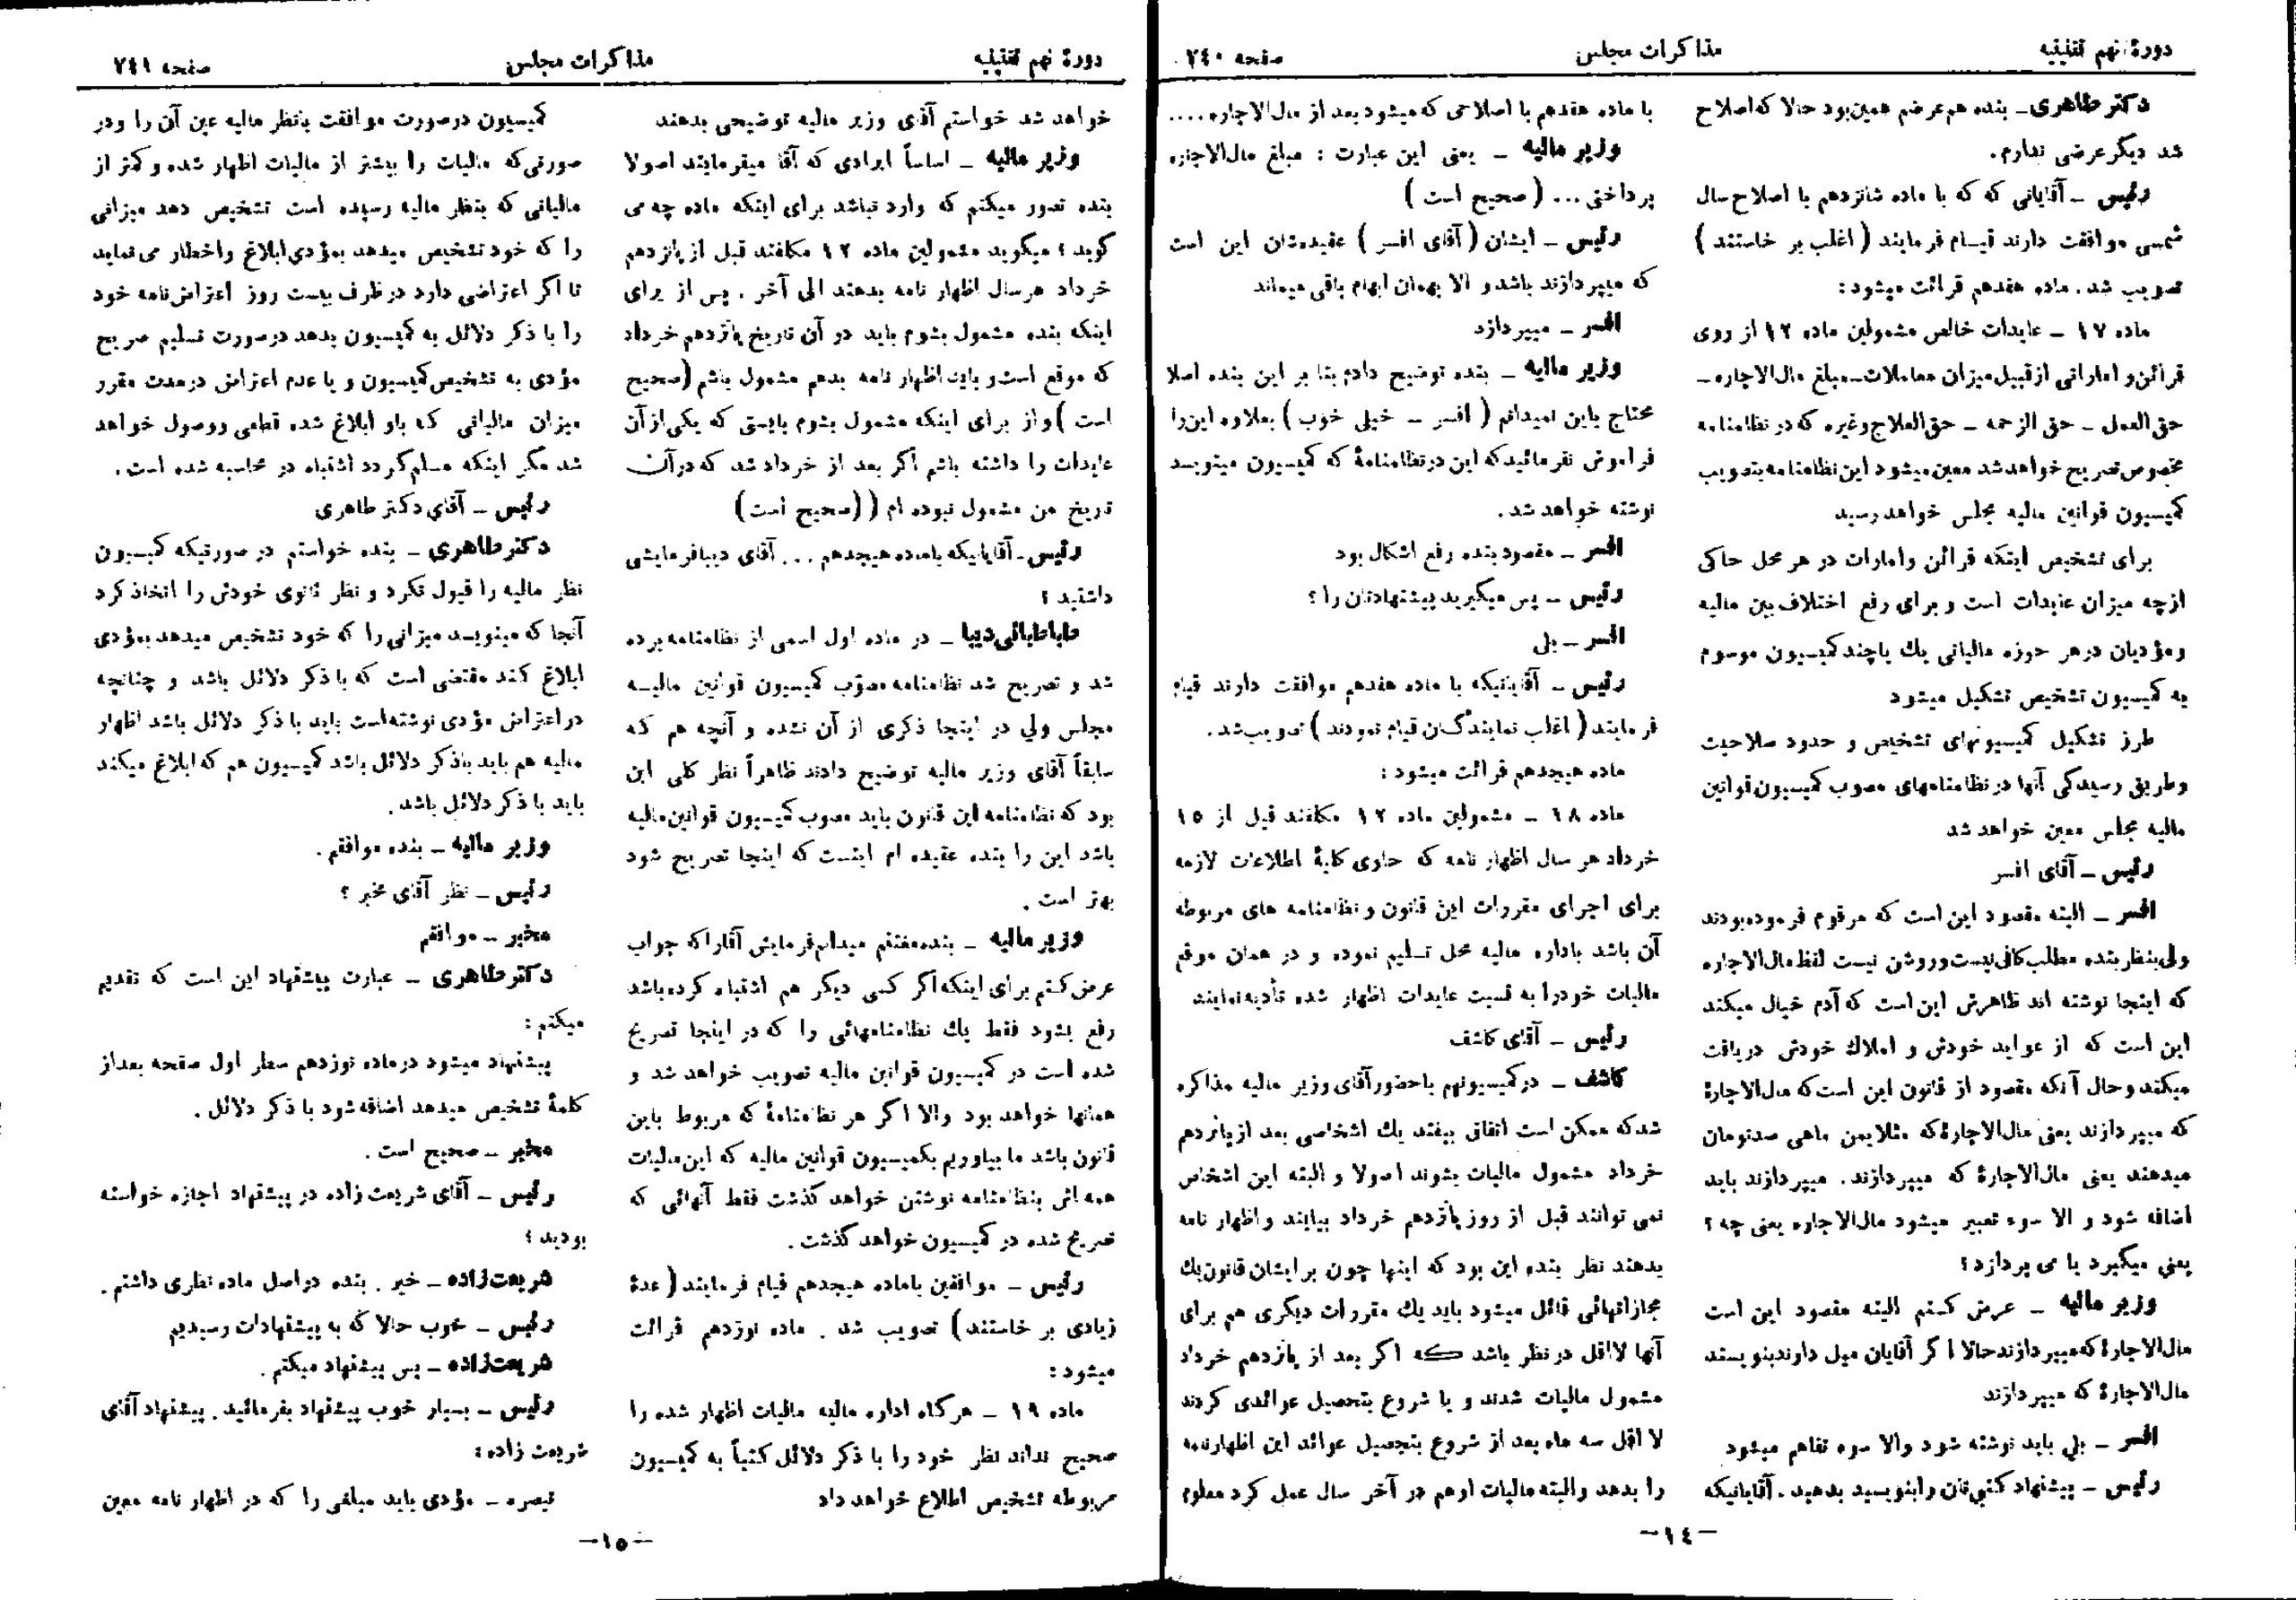 دورهٔ نهم تقنینیه
مذاکرات مجلس
صفحه ۷٤۰
دکتر طاهری ــ بنده هم عرضم همین بود حالا که اصلاح
شد دیگر عرضی ندارم.
رئیس ــ آقایانی که که با ماده شانزدهم با اصلاح سال
شمسی موافقت دارند قیـام فرمایند ( اغلب بر خاستند )
تصویب شد . ماده هفدهم قرائت میشود :
ماده ۱۷ ــ عایدات خالص مشمولین ماده ۱۲ از روی
قرائن و اماراتی از قبیل میزان معاملات ــ مبلغ مال‌الاجاره ــ
حق‌العمل ــ حق الزحمه ــ حق‌العلاج وغیره که در نظامنامه
مخصوص تصریح خواهد شد معین میشود این نظامنامه بتصویب
کمیسیون قوانین مالیه مجلس خواهد رسید
برای تشخیص اینکه قرائن وامارات در هر محل حاکی
ازچه میزان عایدات است و برای رفع اختلاف بین مالیه
ومؤدیان درهر حوزه مالیاتی یك یاچند کمیسیون موسوم
به کمیسیون تشخیص تشکیل میشود
طرز تشکیل کمیسیونهای تشخیص و حدود صلاحیت
وطریق رسیدگی آنها در نظامنامهای مصوب کمیسیون قوانین
مالیه مجلس معین خواهد شد
رئیس ــ آقای افسر
افسر ــ البته مقصود این است که مرقوم فرموده بودند
ولی بنظر بنده مطلب کافی نیست وروشن نیست لفظ مال‌الاجاره
که اینجا نوشته اند ظاهرش این است که آدم خیال میکند
این است که از عواید خودش و املاك خودش دریافت
میکند وحال آنکه مقصود از قانون این است که مال‌الاجارهٔ
که میپردازند یعنی مال‌الاجارهٔ که مثلا یمن ماهی صدتومان
میدهند یعنی مال‌الاجارهٔ که میپردازند . میپردازند باید
اضافه شود و الا سوء تعبیر میشود مال‌الاجاره یعنی چه ؟
یعنی میگیرد یا می پردازد؟
وزیر مالیه ــ عرض کـنم البته مقصود این است
مال‌الاجارهٔ که میپردازند حالا ا گر آقایان میل دارند بنویسند
مال‌الاجارهٔ که میپردازند
افسر ــ بلی باید نوشته شود والا سوء تفاهم میشود
رئیس ــ پیشنهاد کتبی تان را بنویسید بدهید . آقایانیکه
با ماده هفدهم با اصلاحی که میشود بعد از مال‌الاجاره....
وزیر مالیه ــ یعنی این عبارت : مبلغ مال‌الاجاره
پرداختی ... ( صحیح است )
رئیس ــ ایشان ( آقای افسر ) عقیده‌شان این است
که میپردازند باشد و الا بهمان ابهام باقی میماند
افسر ــ میپردازد
وزیر مالیه ــ بنده توضیح دادم بنا بر این بنده اصلا
محتاج باین نمیدانم ( افسر ــ خیلی خوب ) بعلاوه این را
فراموش نفرمائید که این در نظامنامهٔ که کمیسیون مینویسد
نوشته خواهد شد .
افسر ــ مقصود بنده رفع اشکال بود
رئیس ــ پس میگیرید پیشنهادتان را ؟
افسر ــ بلی
رئیس ــ آقایانیکه با ماده هفدهم موافقت دارند قیام
فرمایند ( اغلب نمایندگـان قیام نمودند ) تصویب شد .
ماده هیجدهم قرائت میشود :
ماده ۱۸ ــ مشمولین ماده ۱۲ مکلفند قبل از ۱٥
خرداد هر سال اظهار نامه که حاوی کلیهٔ اطلاعات لازمه
برای اجرای مقررات این قانون و نظامنامه های مربوطه
آن باشد باداره مالیه محل تسلیم نموده و در همان موقع
مالیات خودرا به نسبت عایدات اظهار شده تأدیه نمایند
رئیس ــ آقای کاشف
کاشف ــ در کمیسیونهم با حضور آقای وزیر مالیه مذاکره
شد که ممکن است اتفاق بیفتد یك اشخاصی بعد از پانزدهم
خرداد مشمول مالیات بشوند اصولا و البته این اشخاص
نمی توانند قبل از روز پانزدهم خرداد بیایند واظهار نامه
بدهند نظر بنده این بود که اینها چون برایشان قانون یك
مجازاتهائی قائل میشود باید یك مقررات دیگری هم برای
آنها لااقل در نظر باشد که اکر بعد از پانزدهم خرداد
مشمول مالیات شدند و یا شروع بتحصیل عوائدی کردند
لا اقل سه ماه بعد از شروع بتحصیل عوائد این اظهارنامه
را بدهد والبته مالیات اوهم در آخر سال عمل کرد معلوم
ــ۱٤ــ
دورهٔ نهم تقنینیه
مذاکرات مجلس
صفحه ۷٤۱
خواهد شد خواستم آقای وزیر مالیه توضیحی بدهند
وزیر مالیه ــ اساساً ایرادی که آقا میفرمایند اصولا
بنده تصور میکنم که وارد نباشد برای اینکه ماده چه می
گوید ؟ میگوید مشمولین ماده ۱۲ مکلفند قبل از پانزدهم
خرداد هرسال اظهار نامه بدهند الی آخر . پس از برای
اینکه بنده مشمول بشوم باید در آن تاریخ پانزدهم خرداد
که موقع است و باید اظهار نامه بدهم مشمول باشم (صحیح
است ) و از برای اینکه مشمول بشوم بایستی که یکی از آن
عایدات را داشته باشم اگر بعد از خرداد شد که در آن
تاریخ من مشمول نبوده ام ( (صحیح است )
رئیس ــ آقایانیکه باماده هیجدهم ... آقای دیبا فرمایشی
داشتید ؟
طباطبائی دیبا ــ در ماده اول اسمی از نظامنامه برده
شد و تصریح شد نظامنامه مصوب کمیسیون قوانین مالیـه
مجلس ولی در اینجا ذکری از آن نشده و آنچه هم که
سابقاً آقای وزیر مالیه توضیح دادند ظاهراً نظر کلی این
بود که نظامنامه این قانون باید مصوب کمیسیون قوانین مالیه
باشد این را بنده عقیده ام اینست که اینجا تصریح شود
بهتر است .
وزیر مالیه ــ بنده مغتنم میدانم فرمایش آقارا که جواب
عرض کـنم برای اینکه اگر کسی دیگر هم اشتباه کرده باشد
رفع بشود فقط یك نظامنامهائی را که در اینجا تصریح
شده است در کمیسیون قوانین مالیه تصویب خواهد شد و
همانها خواهد بود والا ا گر هر نظامنامهٔ که مربوط باین
قانون باشد ما بیاوریم بکمیسیون قوانین مالیه که این مالیات
همه اش بنظامنامه نوشتن خواهد گذشت فقط آنهائی که
تصریح شده در کمیسیون خواهد گذشت .
رئیس ــ موافقین باماده هیجدهم قیام فرمایند ( عدهٔ
زیادی بر خاستند) تصویب شد . ماده نوزدهم قرائت
میشود :
ماده ۱۹ ــ هرگاه اداره مالیه مالیات اظهار شده را
صحیح نداند نظر خود را با ذکر دلائل کتباً به کمیسیون
مربوطه تشخیص اطلاع خواهد داد
کمیسیون درصورت موافقت بانظر مالیه عین آن را ودر
صورتی‌که مالیات را بیشتر از مالیات اظهار شده و کمتر از
مالیاتی که بنظر مالیه رسیده است تشخیص دهد میزانی
را که خود تشخیص میدهد بمؤدی ابلاغ واخطار می نماید
تا اکر اعتراضی دارد در ظرف بیست روز اعتراض‌نامه خود
را با ذکر دلائل به کمیسیون بدهد درصورت تسلیم صریح
مؤدی به تشخیص کمیسیون و یا عدم اعتراض درمدت مقرر
میزان مالیاتی که باو ابلاغ شده قطعی ووصول خواهد
شد مگر اینکه مسلم گردد اشتباه در محاسبه شده است .
رئیس ــ آقای دکتر طاهری
دکتر طاهری ــ بنده خواستم در صورتیکه کمیسیون
نظر مالیه را قبول نکرد و نظر ثانوی خودش را اتخاذ کرد
آنجا که مینویسد میزانی را که خود تشخیص میدهد بمؤدی
ابلاغ کند مقتضی است که با ذکر دلائل باشد و چنانچه
در اعتراض مؤدی نوشته است باید با ذکر دلائل باشد اظهار
مالیه هم باید باذکر دلائل باشد کمیسیون هم که ابلاغ میکند
باید با ذکر دلائل باشد .
وزیر مالیه ــ بنده موافقم .
رئیس ــ نظر آقای مخبر ؟
مخبر ــ موافقم
دکتر طاهری ــ عبارت پیشنهاد این است که تقدیم
میکنم :
پیشنهاد میشود در ماده نوزدهم سطر اول صفحه بعد از
کلمهٔ تشخیص میدهد اضافه شود با ذکر دلائل .
مخبر ــ صحیح است .
رئیس ــ آقای شریعت زاده در پیشنهاد اجازه خواسته
بودید ؟
شریعت‌زاده ــ خیر . بنده در اصل ماده نظری داشتم .
رئیس ــ خوب حالا که به پیشنهادات رسیدیم
شریعت‌زاده ــ پس پیشنهاد میکنم .
رئیس ــ بسیار خوب پیشنهاد بفرمائید . پیشنهاد آقای
شریعت زاده :
تبصره ــ مؤدی باید مبلغی را که در اظهار نامه معین
ــ۱٥ــ